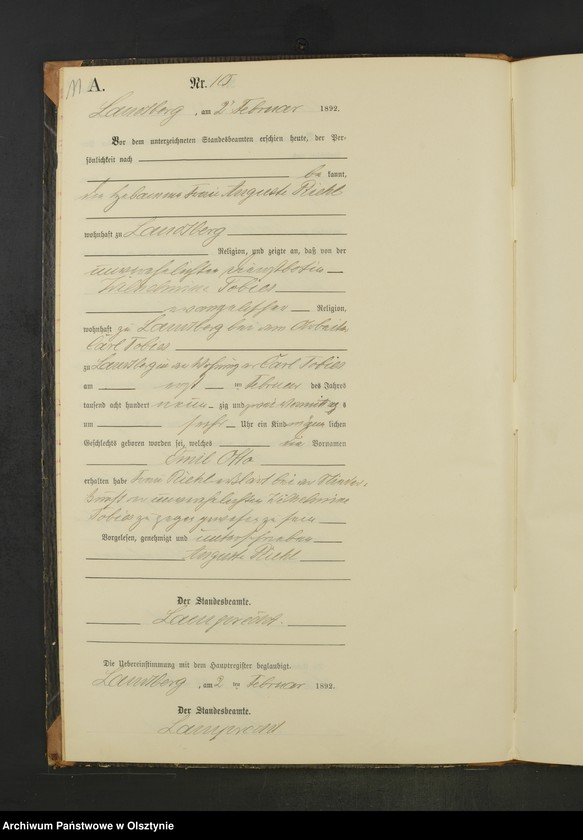 A. Nr. 10
Landsberg, am 2 Februar 1892.
Vor dem unterzeichneten Standesbeamten erschien heute, der Per-
sönlichkeit nach
be kannt,
die Hebamme Frau Auguste Riehl
wohnhaft zu Landsberg
Religion, und zeigte an, daß von der
unverehelichten Dienstbotin
Wilhelmine Tobies
evangelischer Religion,
wohnhaft zu Landsberg bei dem Arbeiter
Carl Tobies
zu Landsberg in der Wohnung des Carl Tobies
am ersten Februar des Jahres
tausend acht hundert neun zig und zwei Vormittags
um sechs Uhr ein Kind männlichen
Geschlechts geboren worden sei, welches die Vornamen
Emil Otto
erhalten habe Frau Riehl erklärt bei der Nieder-
kunft der unverehelichten Wilhelmine
Tobies zugegen gewesen zu sein
Vorgelesen, genehmigt und unterschrieben
Auguste Riehl
Der Standesbeamte.
Lamprecht.
Die Uebereinstimmung mit dem Hauptregister beglaubigt.
Landsberg, am 2 ten Februar 1892.
Der Standesbeamte.
Lamprecht
Archiwum Państwowe w Olsztynie